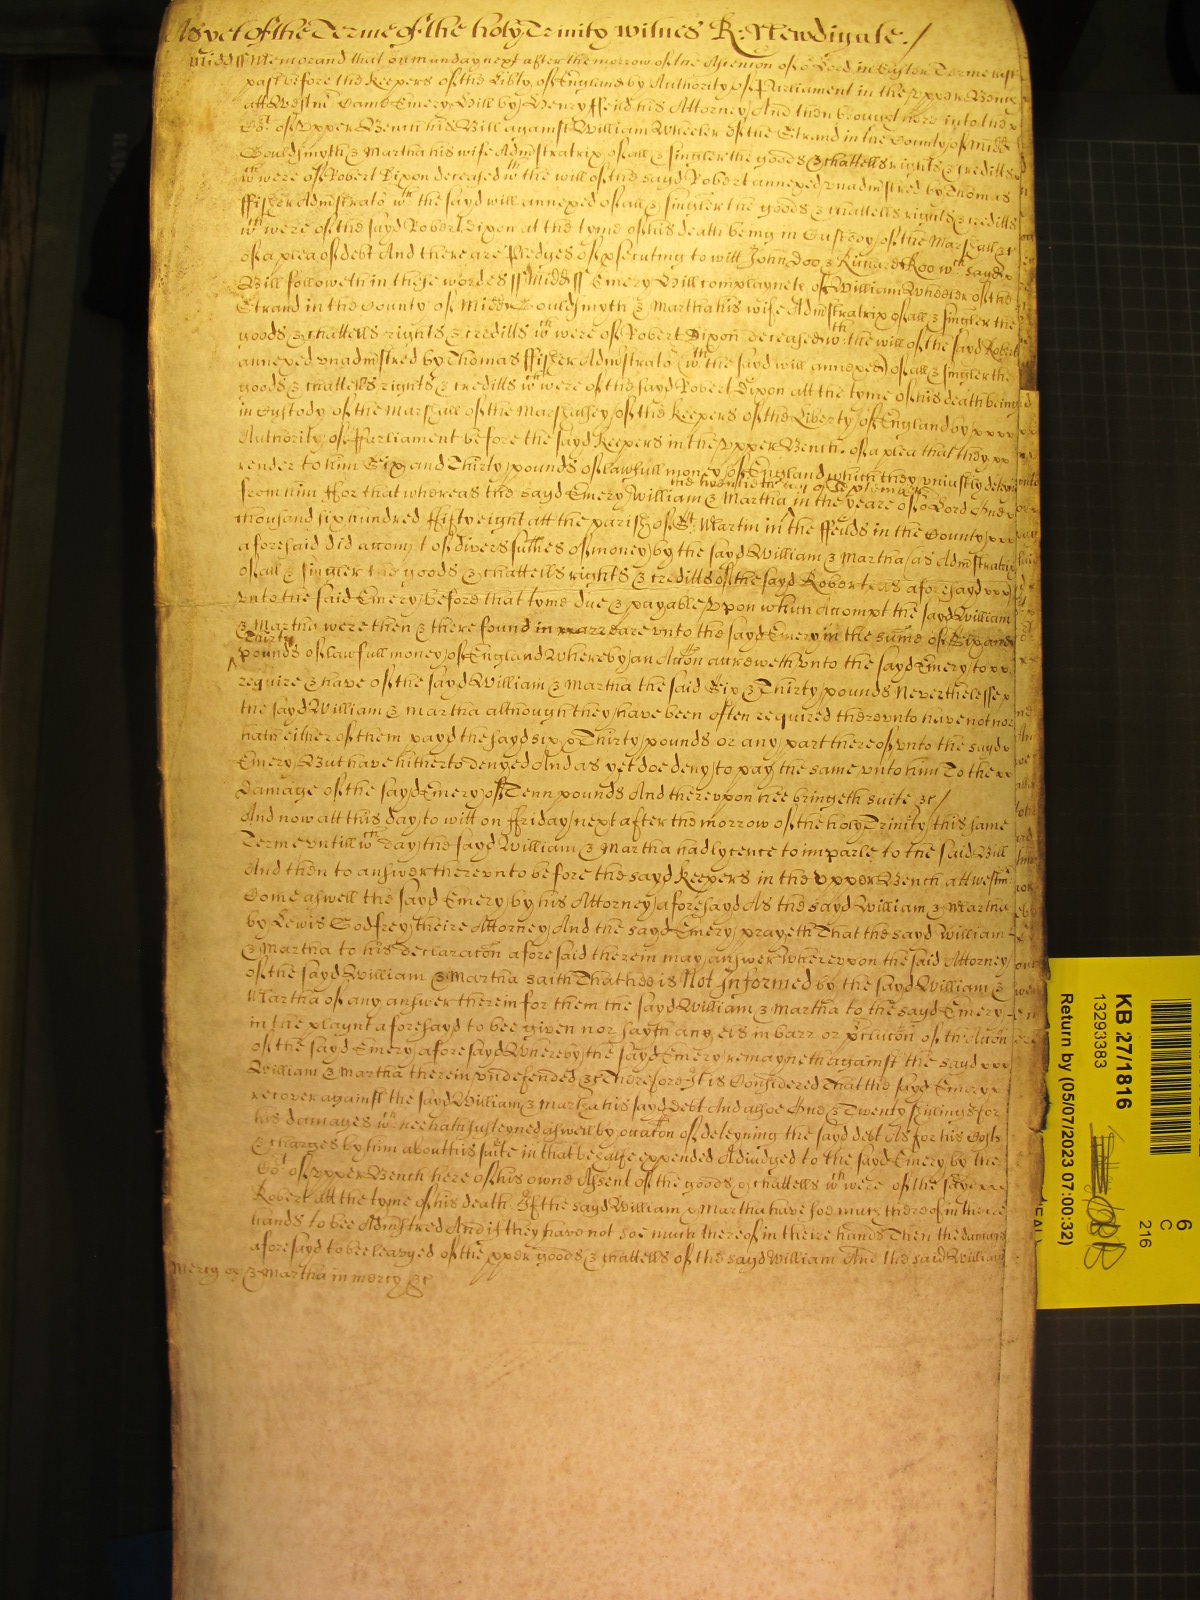 As yet of the Terme of the holy Trinity witnes R: Newdigate ./
Midds ss Memorand that on munday next after the morrow of the Assention of or Lord in Easter Terme last
past before the Keepers of the Libty of England by Authority of Parliament in the Upper Bench
att Westm Came Emery Hill by Henry ffeild his Attorney And then brought here into the x
Cort of Upper Bench his Bill against William Wheeler of the Strand in the County of Midd
Gouldsmyth & Martha his wife Admstratrix of all & singler the goods & chattells rights & creditts
wch were of Robert Dixon deceased wth the will of the sayd Robert annexed unadmstred by Thomas
ffisher Admstrator wth the sayd will annexed of all & singler the goods & chattells rights & creditts
wch were of the sayd Robert Dixon at the tyme of his death being in Custody of the Marshall &c
of a plea of debt And there are Pledges of psecuting to witt John Doo & Richard Roo wch sayd x
Bill followeth in these wordes ss Midds ss Emery Hill complayneth of William Wheeler of the
Strand in the County of Midd Gouldsmyth & Martha his wife Admstratrix of all & singler the
goods & chattells rights & creditts wch were of Robert Dixon deceased wth the will of the sayd Robert
annexed unadmstred by Thomas ffisher Admstrator (wth the sayd will annexed) of all & singler the
goods & chattells rights & creditts wch were of the sayd Robert Dixon att the tyme of his death being
in Custody of the Marshall of the Marshalsey of the Keepers of the Liberty of England by xxxx
Authority of Parliament before the sayd Keepers in the Upper Bench of a plea that they xx
render to him Six and Thirty pounds of lawfull money of England which they uniustly deteyne
the twentieth day of September
from him ffor that whereas the sayd Emery William & Martha in the yeare of or Lord One x
thousand six hundred fifty eight att the parish of St Martin in the ffeilds in the County xxx
aforesaid did accompt of divers summes of money by the sayd William & Martha as Admstratrix
of all & singler the goods & chattells rights & creditts of the sayd Robert as aforesayd xxx
unto the said Emery before that tyme due & payable Upon which Accompt the sayd William
& Martha were then & there found in areare unto the sayd Emery in the sume of Six and
Thirty
pounds of lawfull money of England Whereby an Accon accreweth unto the sayd Emery to xx
require & have of the sayd William & Martha the said Six & Thirty pounds Neverthelesse x
the sayd William & Martha although they have been often required thereunto have not nor
hath either of them payd the sayd six & Thirty pounds or any part thereof unto the sayd x
Emery But have hitherto denyed And as yet doe deny to pay the same unto him To the xx
damage of the sayd Emery of Tenn pounds And thereupon hee bringeth suite &c /
And now att this day to witt on ffriday next after the morrow of the holy Trinity this same
Terme untill wch day the sayd William & Martha had lycence to imparle to the said Bill
And then to answer thereunto before the sayd Keepers in the Upper Bench att Westm
Come aswell the sayd Emery by his Attorney aforesayd As the sayd William & Martha
by Lewis Godfrey theire Attorney And the sayd Emery prayeth That the sayd William
& Martha to his declaracon aforesaid therein may answer Whereupon the said Attorney
of the sayd William & Martha saith That hee is Not Informed by the sayd William &
Martha of any answer therein for them the sayd William & Martha to the sayd Emery
in the playnt aforesayd to bee given nor sayth any els in barr or pclucon of the Accon
of the sayd Emery aforesayd Whereby the sayd Emery remayneth against the sayd xxx
William & Martha therein undefended &c Therefore It is Considered That the sayd Emery x
recover against the sayd William & Martha his sayd Debt And alsoe One & Twenty shillings for
his damages wch hee hath susteyned aswell by occacon of deteyning the sayd debt As for his Costs
& charges by him about his suite in that behalfe expended Adiudged to the sayd Emery by the
Cort of Upper Bench here of his owne Assent of the goods & chattells wch were of the sayd xx
Robert att the tyme of his death If the sayd William & Martha have soe much thereof in theire
hands to bee Admstred And if they have not soe much thereof in theire hands Then the damages
aforesayd to bee leavyed of the pper goods & chattells of the sayd William And the said William
Mercy & Martha in mercy &c
KB 27/1816
13293383
Return by (05/07/2023 07:00:32)
6
C
216